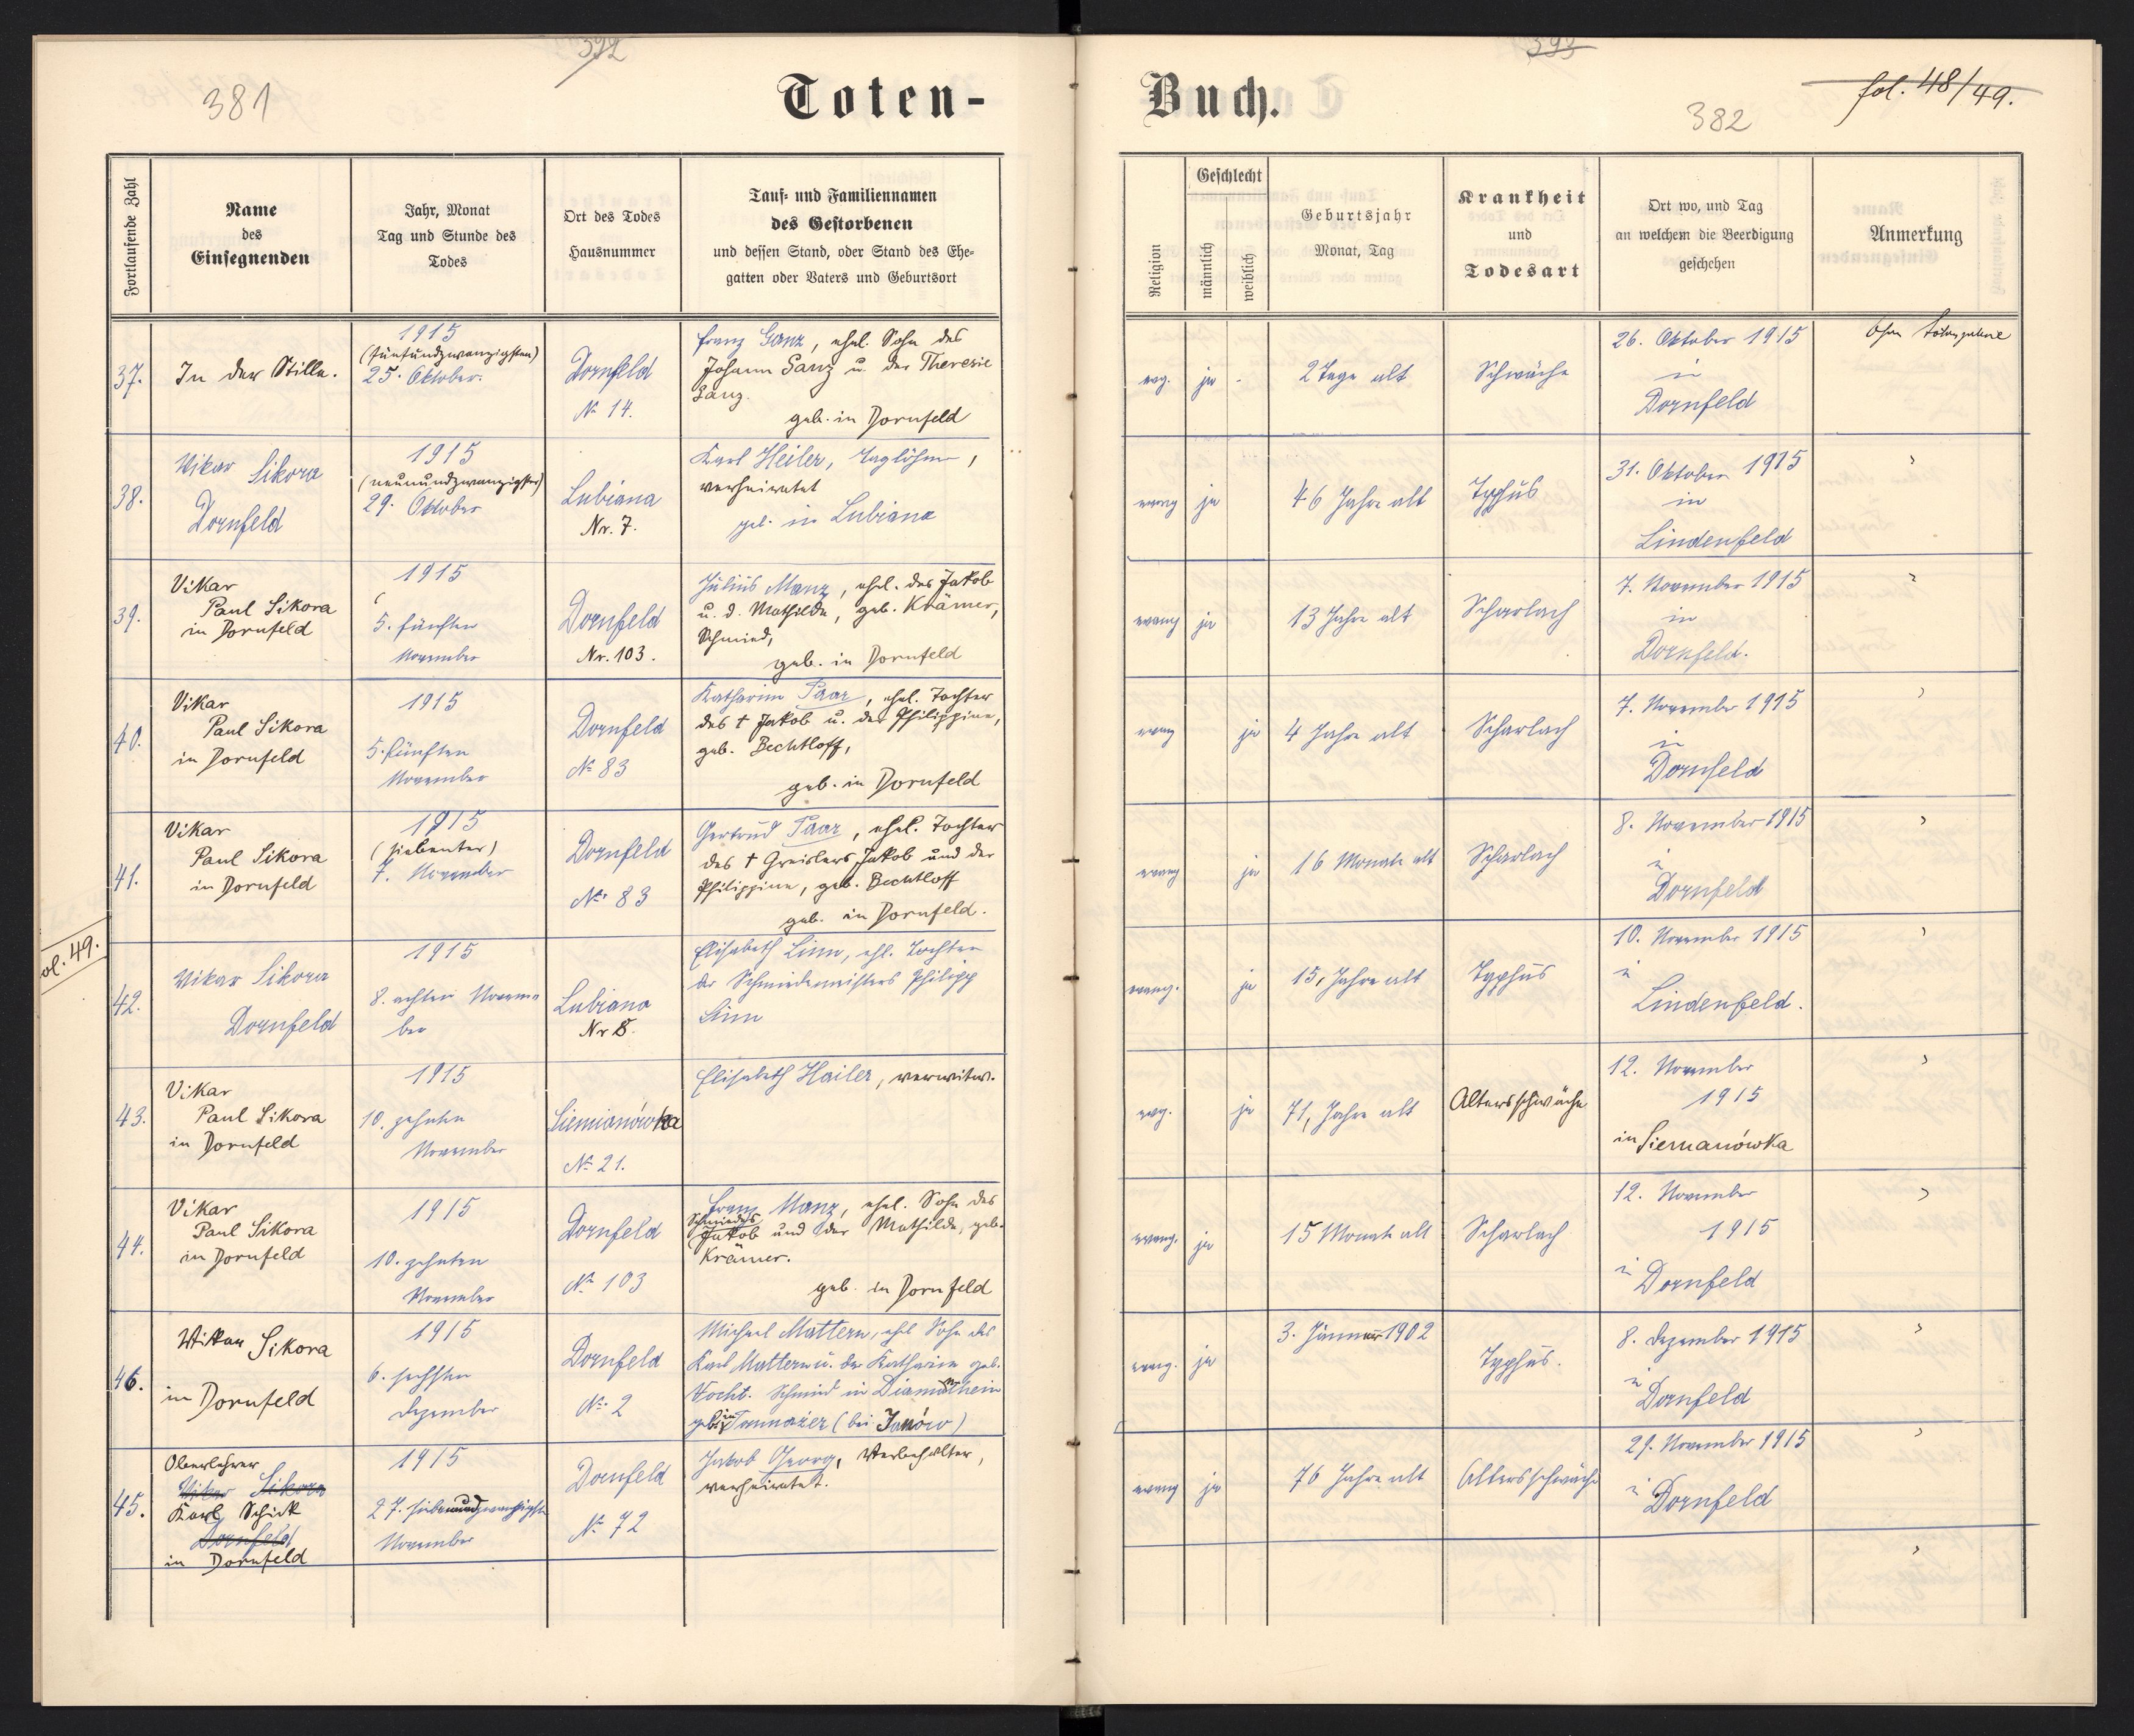 392
393
381
Toten-
Buch.
382
fol. 48/49.
Fortlaufende Zahl
Name
des
Einsegnenden
Jahr, Monat
Tag und Stunde des
Todes
Ort des Todes
Hausnummer
Tauf- und Familiennamen
des Gestorbenen
und dessen Stand, oder Stand des Ehe-
gatten oder Vaters und Geburtsort
Religion
Geschlecht
männlich
weiblich
Geburtsjahr
Monat, Tag
Krankheit
und
Todesart
Ort wo, und Tag
an welchem die Beerdigung
geschehen
Anmerkung
37.
In der Stille.
1915
(fünfundzwanzigsten)
25. Oktober.
Dornfeld
No 14.
Franz Ganz, ehel. Sohn des
Johann Ganz u. der Theresie
Ganz.
geb. in Dornfeld
evg.
ja
-
2 Tage alt
Schwäche
26. Oktober 1915
in
Dornfeld
Ohne
38.
Vikar Sikora
Dornfeld
1915
(neunundzwanzigsten)
29. Oktober
Lubiana
Nr. 7.
Karl Heiler, Taglöhner,
verheiratet
geb. in Lubiana
evang
ja
46 Jahre alt
Typhus
31. Oktober 1915
in
Lindenfeld
39.
Vikar
Paul Sikora
in Dornfeld
1915
5. fünften
November
Dornfeld
Nr. 103.
Julius Manz, ehel. des Jakob
u. d. Mathilde, geb. Krämer,
Schmied,
geb. in Dornfeld
evang
ja
13 Jahre alt
Scharlach
7. November 1915
in
Dornfeld.
40.
Vikar
Paul Sikora
in Dornfeld
1915
5. fünften
November
Dornfeld
No 83
Katharina Paar, ehel. Tochter
des † Jakob u. der Philippine,
geb. Bechtloff,
geb. in Dornfeld
evang
ja
4 Jahre alt
Scharlach
7. November 1915
in
Dornfeld
41.
Vikar
Paul Sikora
in Dornfeld
1915
(siebenter)
7. November
Dornfeld
No. 83
Gertrud Paar, ehel. Tochter
des † Greislers Jakob und der
Philippine, geb. Bechtloff
geb. in Dornfeld.
evang
ja
16 Monate alt
Scharlach
8. November 1915
in
Dornfeld
ol. 49.
42.
Vikar Sikora
Dornfeld
1915
8. achten Novem-
ber
Lubiana
Nr 8.
Elisabeth Linn, ehl. Tochter
des Schmiedemeisters Philipp
Linn
evang.
ja
15, Jahre alt
Typhus
10. November 1915
in
Lindenfeld.
43.
Vikar
Paul Sikora
in Dornfeld
1915
10. zehnten
November
Siemianówka
No 21.
Elisabeth Hailer, verwitw.
evg.
ja
71, Jahre alt
Altersschwäche
12. November
1915
in Siemanówka
44.
Vikar
Paul Sikora
in Dornfeld
1915
10. zehnten
November
Dornfeld
No 103
Franz Manz, ehel. Sohn des
Schmiedes
Jakob und der Mathilde, geb.
Krämer.
geb. in Dornfeld
evang.
ja
15 Monate alt
Scharlach
12. November
1915
in Dornfeld
46.
Vikar Sikora
in Dornfeld
1915
6. sechsten
Dezember
Dornfeld
No. 2
Michael Mattern, ehel. Sohn des
Karl Mattern u. der Katharina geb.
Schmied in
geb. in (bei Janów)
evang.
ja
3. Jänner 1902
Typhus.
8. Dezember 1915
in
Dornfeld
45.
Oberlehrer
Vikar Sikora
Karl Schick
Dornfeld
in Dornfeld
1915
27. siebenundzwanzigsten
November
Dornfeld
No 72
Jakob Georg,
verheiratet.
evang
ja
76 Jahre alt
Altersschwäche
29. November 1915
in Dornfeld